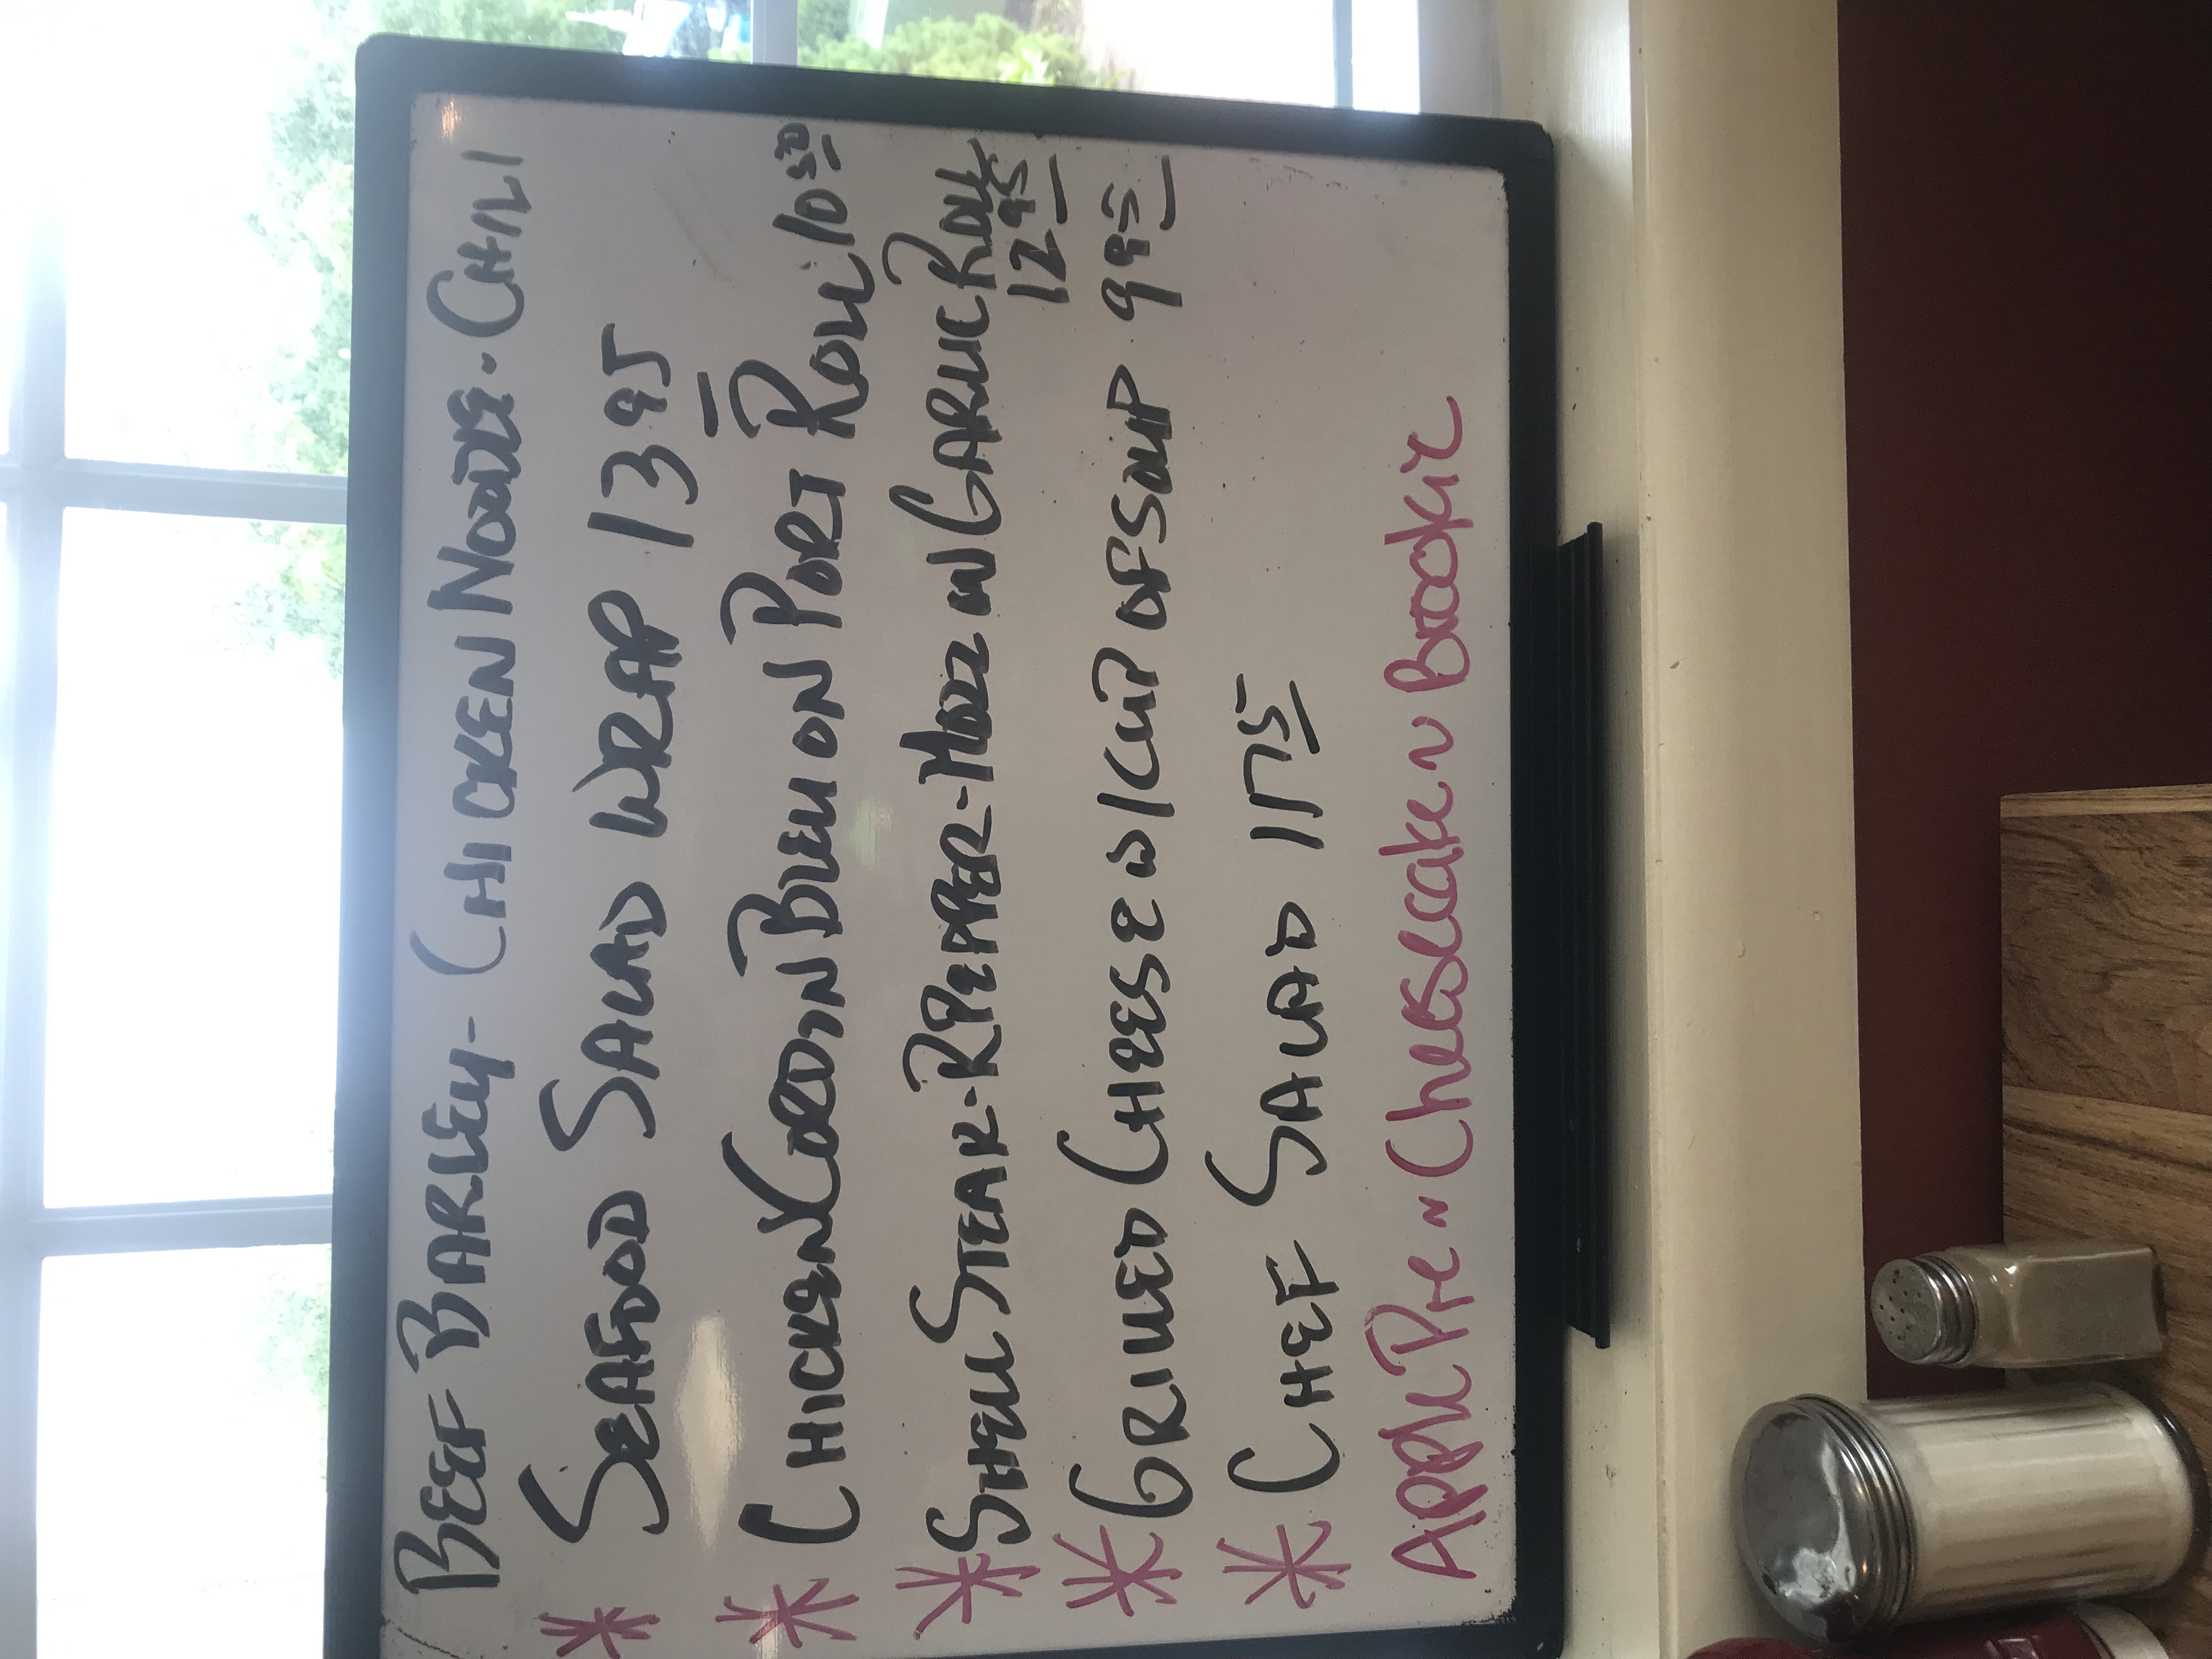 BEEF BARLEY - CHICKEN NOODLE - CHILI
* SEAFOOD SALAD WRAP 13 95
* CHICKEN CORDON BLEU ON PORT ROLL 10 50
* SHELL STEAK-R PEPPER-MOZZ ON GARLIC ROLL
12 95
* GRILLED CHEESE W/CUP OF SOUP 9 95
* CHEF SALAD 11 75
Apple Pie ~ Cheesecake ~ Brookie